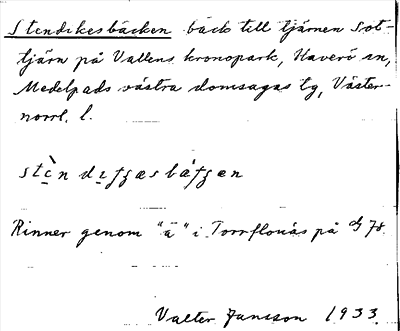 Stendikesbäcken bäck till tjärnen Sot-
tjärn på Vallens kronopark, Haverö sn,
Medelpads västra domsagas tg, Väster-
norrl. l.
Rinner genom "ä" i Torrflonäs på
Valter Jansson 1933